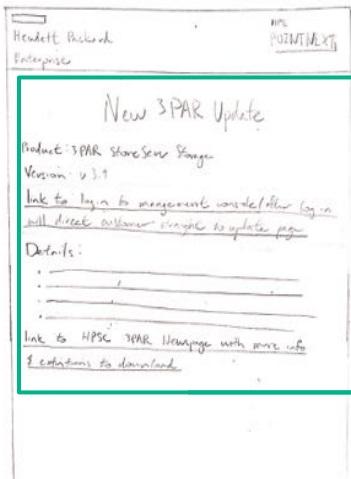 Hewlett Packard
Enterprise
HPE
POINTNEXT
New 3PAR Update
Product: 3PAR StoreServ Storage
Version: v 3.
link to log in to management console/after log in
will direct customer straight to update page
Details:
link to HPSC 3PAR Newpage with more info
& to download